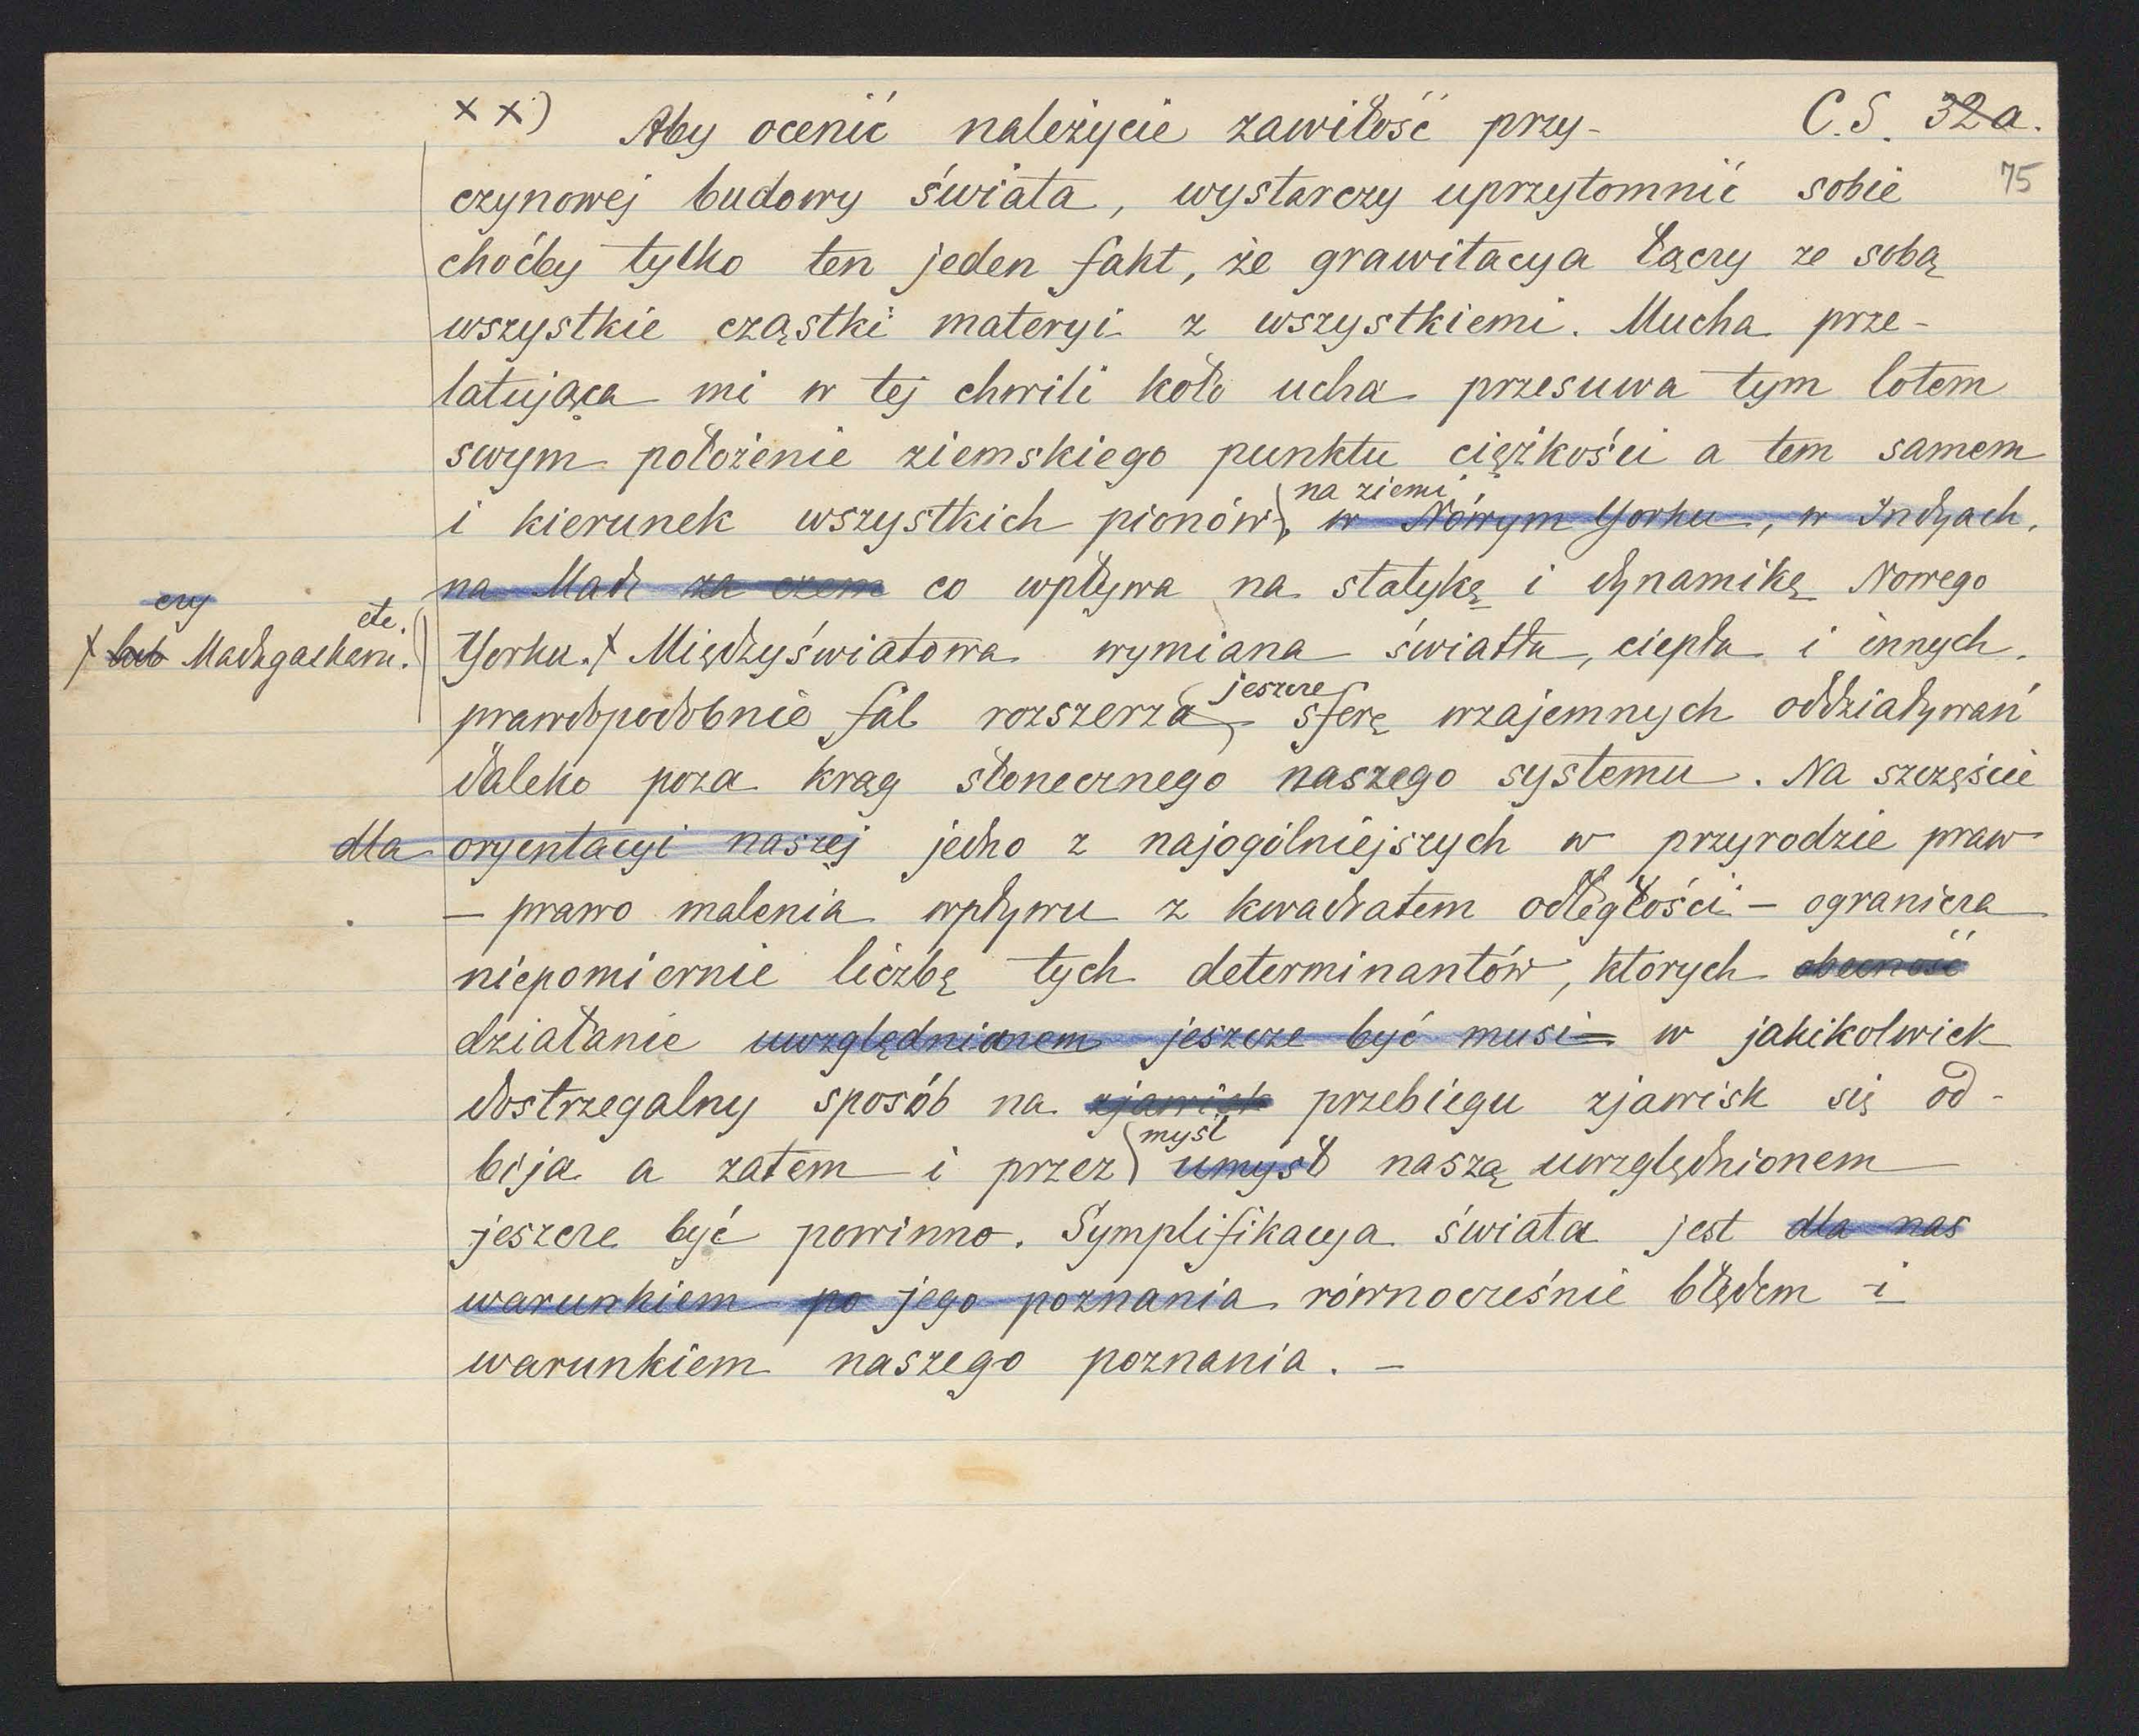 xx) Aby ocenić należycie zawiłość przy- C.S. 32a.
75
czynowej budowy świata, wystarczy uprzytomnić sobie
choćby tylko ten jeden fakt, że grawitacya łączy ze sobą
wszystkie cząstki materyi z wszystkiemi. Mucha prze-
latująca mi w tej chwili koło ucha przesuwa tym lotem
swym położenie ziemskiego punktu ciężkości a tem samem
na ziemi
i kierunek wszystkich pionów, w Nowym Yorku, w Indyach,
na Mad za czem co wpływa na statykę i dynamikę Nowego
czy etc.
x lub Madagaskaru. Yorku. x Międzyświatowa wymiana światła, ciepła i innych
jeszcze
prawdopodobnie fal rozszerza sferę wzajemnych oddziaływań
daleko poza krąg słonecznego naszego systemu. Na szczęście
dla oryentacyi naszej jedno z najogólniejszych w przyrodzie praw
– prawo malenia wpływu z kwadratem odległości – ogranicza
niepomiernie liczbę tych determinantów, których obecność
działanie uwzględnionem jeszcze być musi w jakikolwiek
dostrzegalny sposób na zjawisk przebiegu zjawisk się od-
myśl
bija a zatem i przez umysł naszą uwzględnionem
jeszcze być powinno. Symplifikacya świata jest dla nas
warunkiem po jego poznania równocześnie błędem i
warunkiem naszego poznania. –